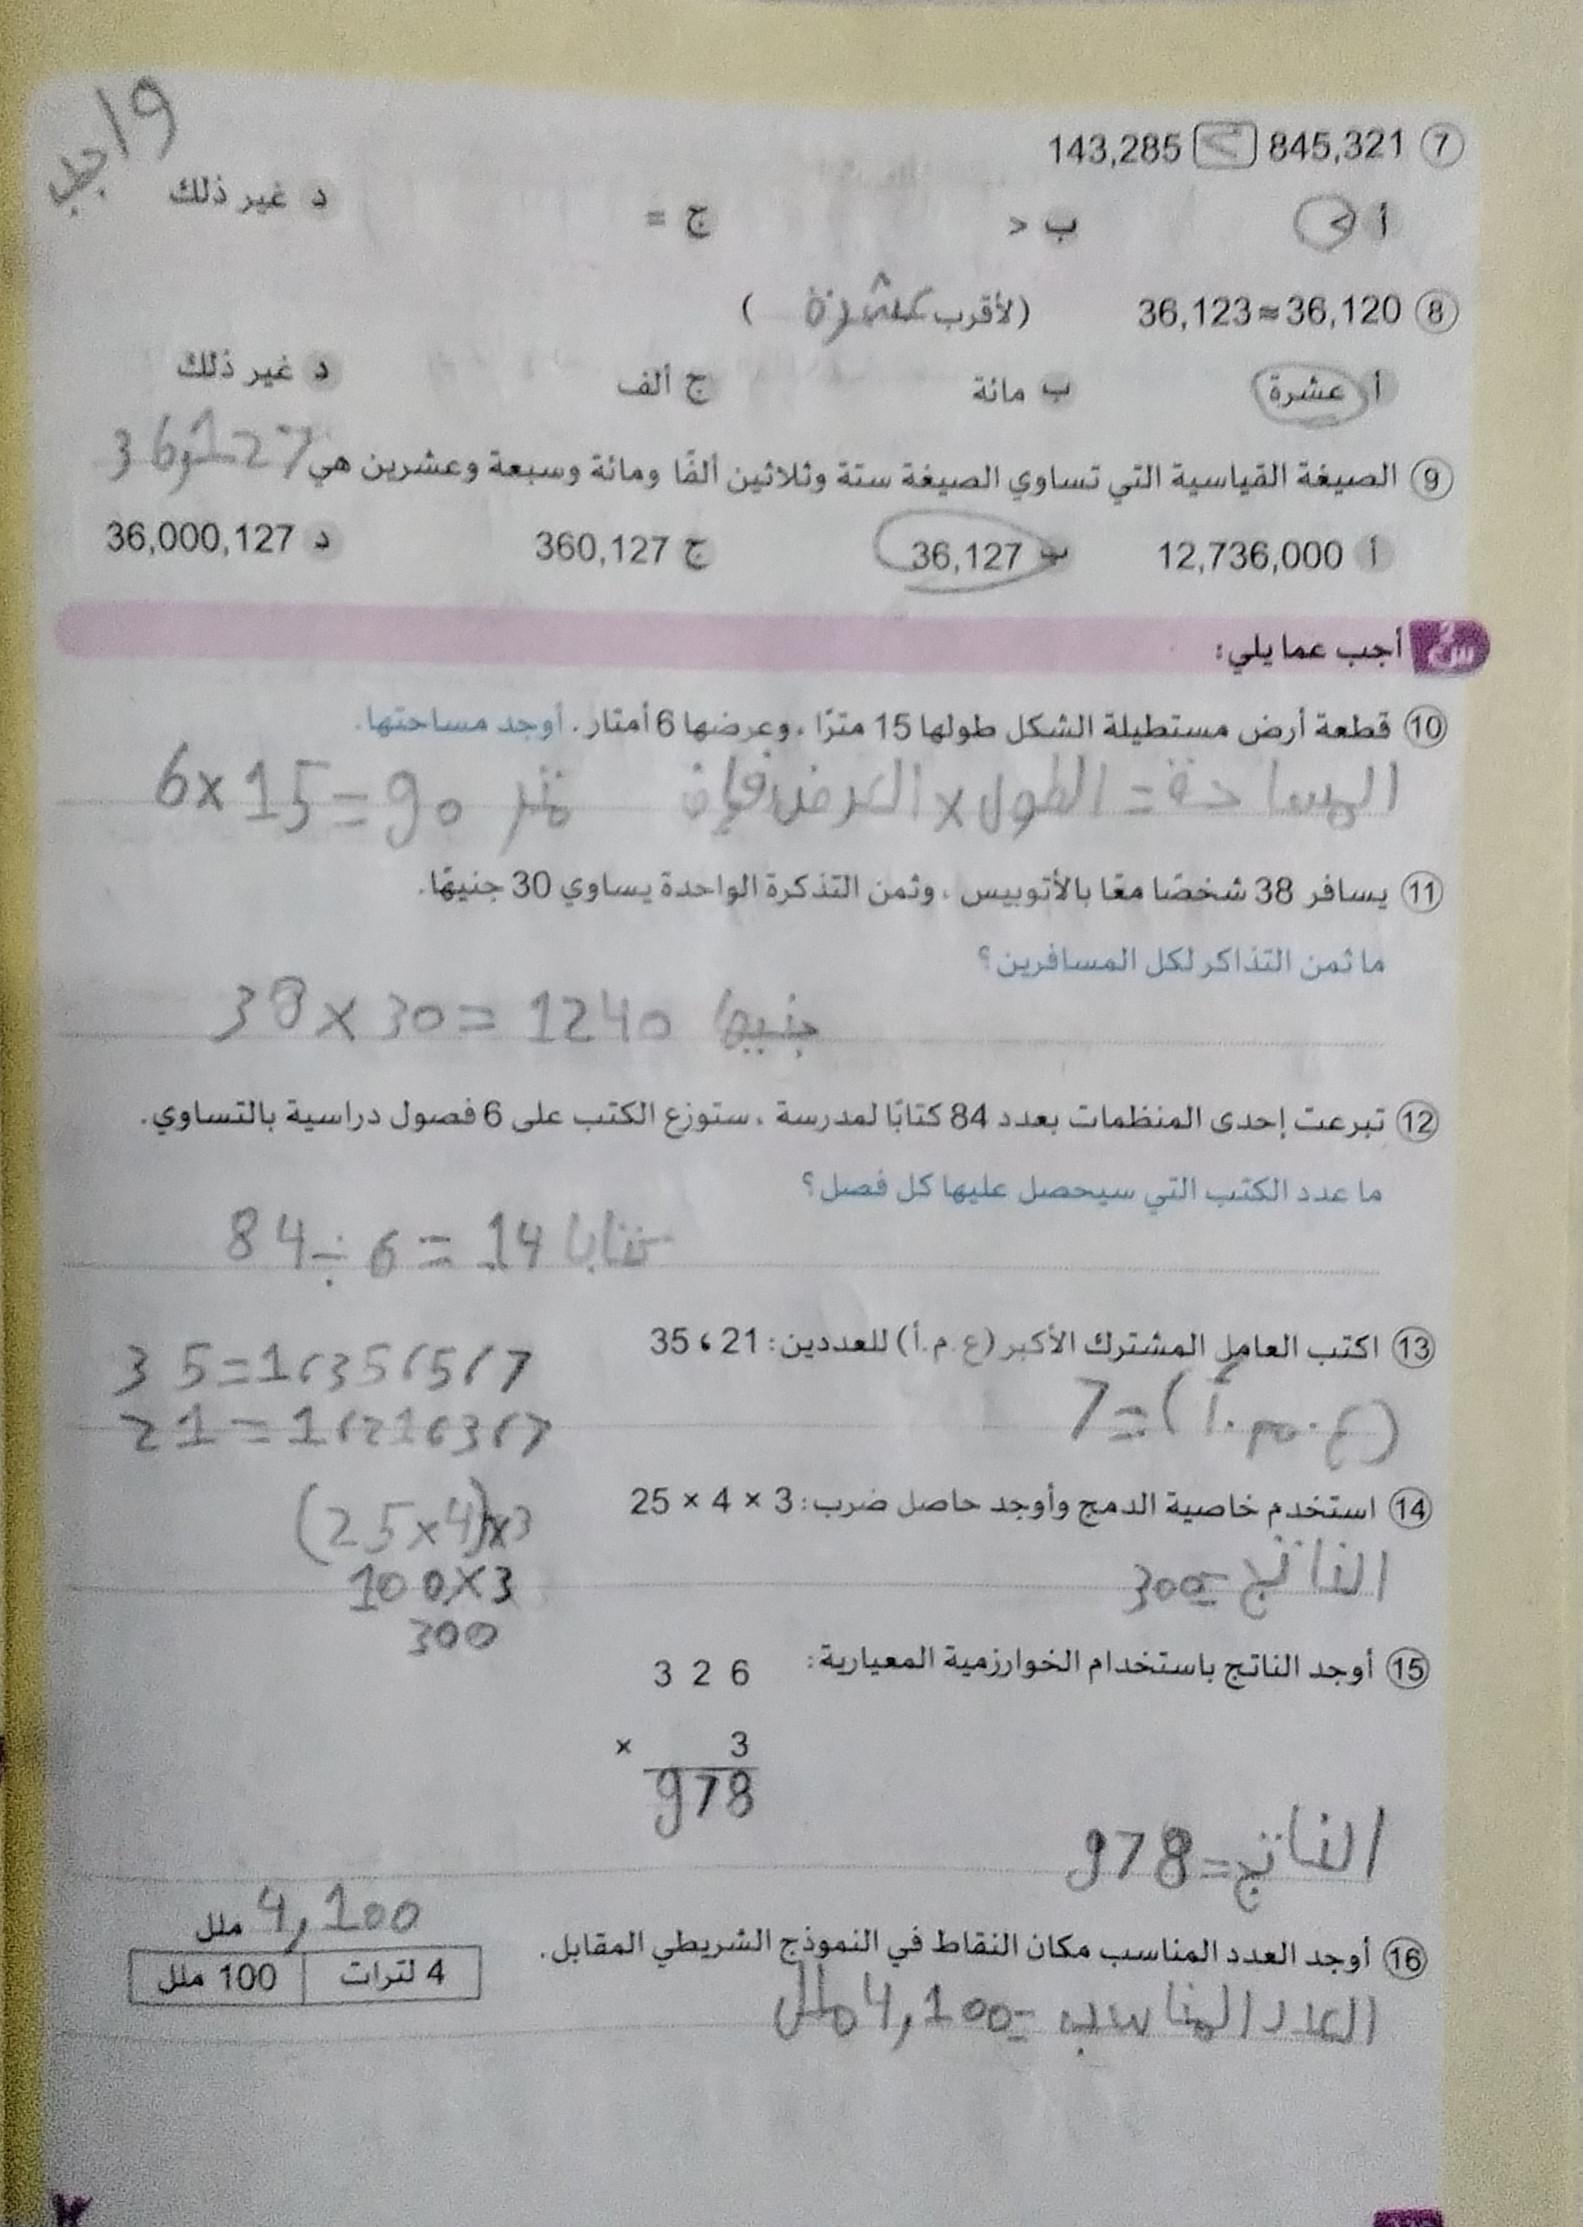 واجب
7 845,321 < 143,285
أ < ب > ج = د غير ذلك
8 36,123 ≈ 36,120 (لأقرب عشرة)
أ عشرة ب مائة ج ألف د غير ذلك
9 الصيغة القياسية التي تساوي الصيغة ستة وثلاثين ألفًا ومائة وسبعة وعشرين هي 36,127
أ 12,736,000 ب 36,127 ج 360,127 د 36,000,127
أجب عما يلي:
10 قطعة أرض مستطيلة الشكل طولها 15 مترًا، وعرضها 6 أمتار. أوجد مساحتها.
المساحة = الطول × العرض فإن 6 × 15 = 90 متر
11 يسافر 38 شخصًا معًا بالأتوبيس، وثمن التذكرة الواحدة يساوي 30 جنيهًا.
ما ثمن التذاكر لكل المسافرين؟
38 × 30 = 1240 جنيها
12 تبرعت إحدى المنظمات بعدد 84 كتابًا لمدرسة، ستوزع الكتب على 6 فصول دراسية بالتساوي.
ما عدد الكتب التي سيحصل عليها كل فصل؟
84 ÷ 6 = 14 كتابا
13 اكتب العامل المشترك الأكبر (ع.م.أ) للعددين: 21 ، 35
35 = 1 ، 35 ، 5 ، 7
(ع.م.أ) = 7
21 = 1 ، 21 ، 3 ، 7
14 استخدم خاصية الدمج وأوجد حاصل ضرب: 25 × 4 × 3
(25 × 4) × 3
الناتج = 300
100 × 3
300
15 أوجد الناتج باستخدام الخوارزمية المعيارية:
3 2 6
× 3
978
الناتج = 978
4,100 ملل
16 أوجد العدد المناسب مكان النقاط في النموذج الشريطي المقابل.
4 لترات 100 ملل
العدد المناسب = 4,100 ملل